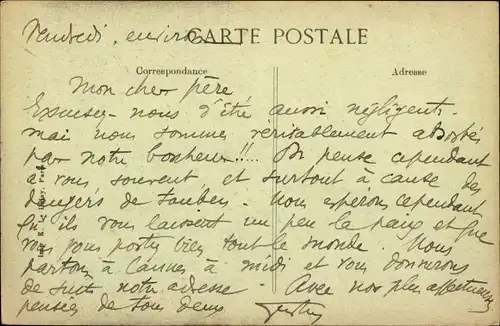 Vendredi, environ
CARTE POSTALE
Correspondance
Adresse
Mon cher père
Excusez-nous d'être aussi négligents
mais nous sommes véritablement absorbés
par notre bonheur!!.... On pense cependant
à vous souvent et surtout à cause des
dangers de Nous espérons cependant
qu'ils vous laissent un peu la paix et que
vous vous portez bien tout le monde. Nous
partons à Cannes à midi et vous donnerons
de suite notre adresse. Avec nos plus affectueuses
pensées de tous deux